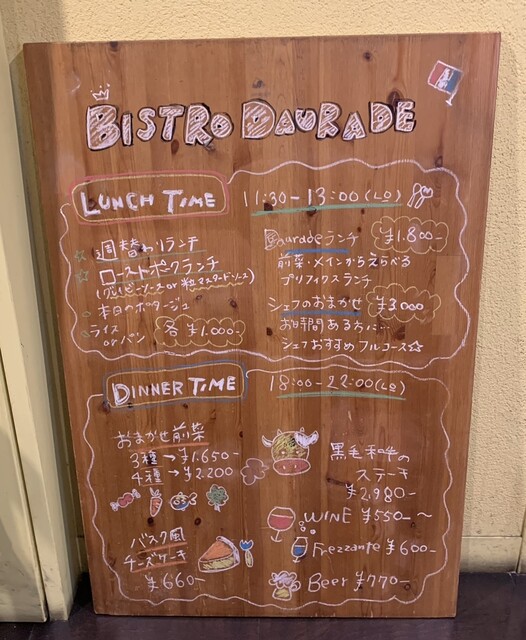 BISTRO DAURADE
LUNCH TIME
11:30-13:00(LO)
☆週替わりランチ
☆ローストポークランチ
(グレイビーソースor粒マスタードソース)
○本日のポタージュ
○ライス
orパン
各¥1.000-
Dauradeランチ
¥1.800-
前菜・メインからえらべる
プリフィクスランチ
シェフのおまかせ
¥3.000
お時間ある方に…
シェフおすすめフルコース☆
DINNER TIME
18:00-22:00(LO)
おまかせ前菜
3種→¥1.650-
4種→¥2.200
バスク風
チーズケーキ
¥660-
黒毛和牛の
ステーキ
¥2.980-
WINE ¥550-~
Frezzante ¥600-
Beer ¥770-